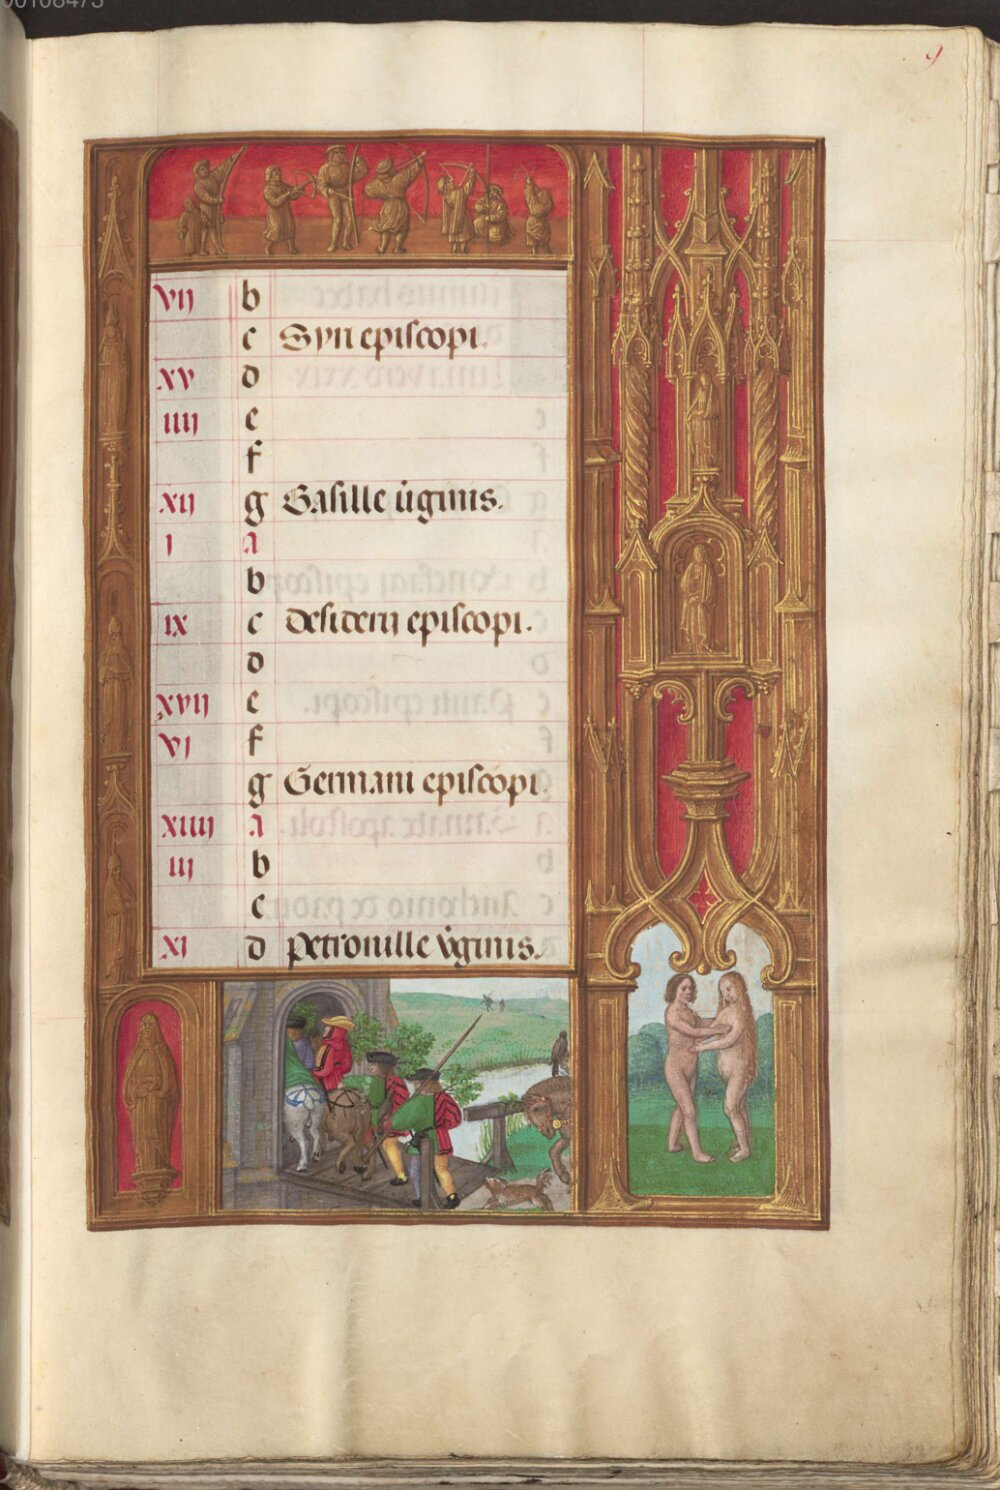 00108473
9
vij b
c Syri episcopi.
xv d
iiij e
f
xij g Basille v̇ginis.
j A
b
ix c Desiderij episcopi.
d
xvij e
vj f
g Germani episcopi.
xiiij A
iij b
c
xj d Petronille v̇ginis.